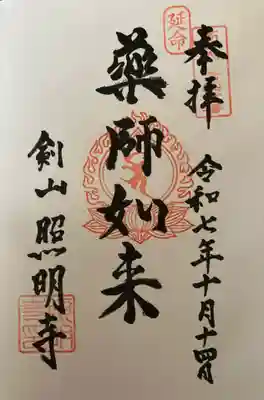 奉拝
延命
令和七年十月十四日
薬師如来
剣山 照明寺